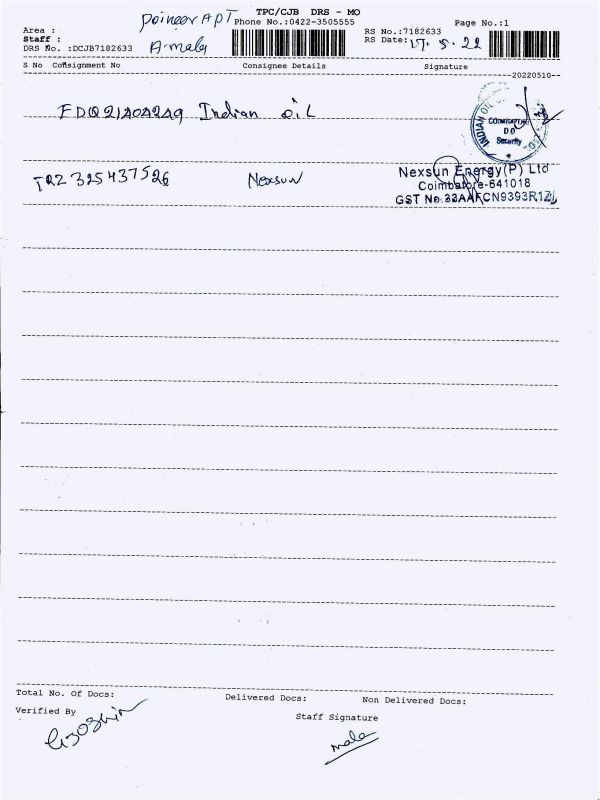 TPC/CJB DRS - MO
Area : poineer APT Phone No.:0422-3505555 Page No.:1
Staff : A-mala RS No.:7182633
DRS No. :DCJB7182633 RS Date: 17.5.22
S No Consignment No Consignee Details Signature
--20220510--
FDQ21A0A249 Indian oil
INDIAN OIL
COIMBATORE
D O
Security
TRZ 325437526 Nexsun
Nexsun Energy(P) Ltd
Coimbatore-641018
GST No.33AAFCN9393R1ZL
Total No. Of Docs: Delivered Docs: Non Delivered Docs:
Verified By Staff Signature
mala